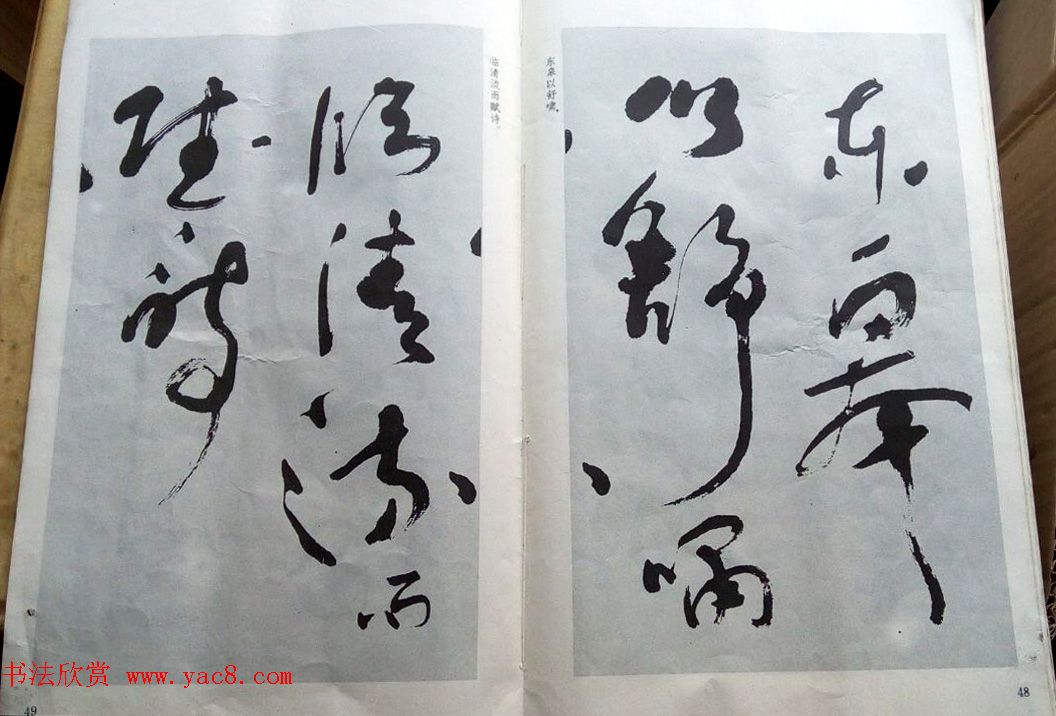 东皋
以舒啸
东皋以舒啸。
临清流而
赋诗
临清流而赋诗。
书法欣赏 www.yac8.com
49
48